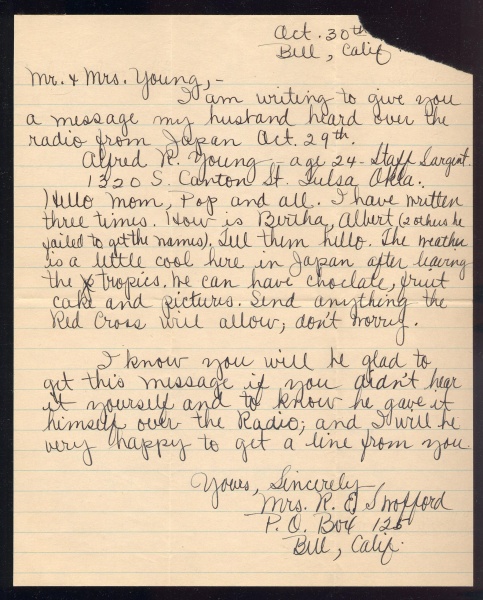 Oct. 30th
Bell, Calif
Mr. & Mrs. Young,-
I am writing to give you
a message my husband heard over the
radio from Japan Oct. 29th.
Alfred R. Young - age 24 - Staff Sargent.
1320 S. Canton St. Tulsa Okla.
Hello Mom, Pop and all. I have written
three times. How is Bertha, Albert (2 others he
failed to get the names). Tell them hello. The weather
is a little cool here in Japan after leaving
the tropics. We can have choclate, fruit
cake and pictures. Send anything the
Red Cross will allow; don't worry.
I know you will be glad to
get this message if you didn't hear
it yourself and to know he gave it
himself over the Radio; and I will be
very happy to get a line from you.
Yours, Sincerely
Mrs. R. E. Swofford
P.O. Box 125
Bell, Calif.